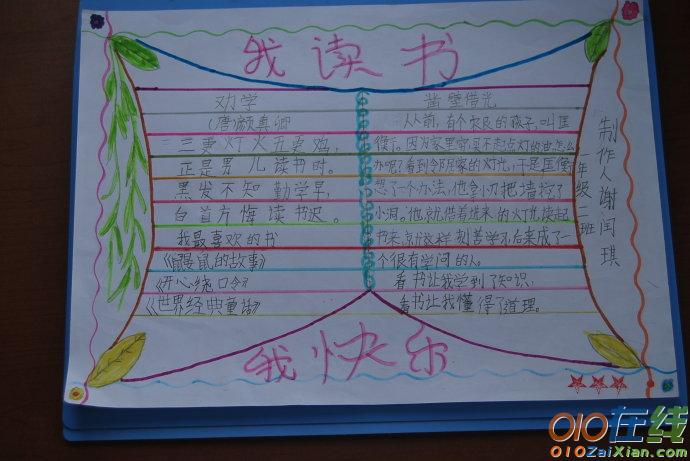 我读书
劝学
(唐)颜真卿
三更灯火五更鸡,
正是男儿读书时。
黑发不知勤学早,
白首方悔读书迟。
我最喜欢的书
《鼹鼠的故事》
《开心绕口令》
《世界经典童话》
凿壁借光
从前,有个农民的孩子,叫匡
衡。因为家里穷,买不起点灯的油,怎么
办呢?看到邻居家的灯光,于是匡衡
想了一个办法,他拿小刀把墙挖了
小洞。他就借着进来的灯光读起
书来,就这样刻苦学习后来成了一
个很有学问的人。
看书让我学到了知识,
看书让我懂得了道理。
年级二班
制作人谢闰琪
我快乐
010在线
010ZaiXian.com